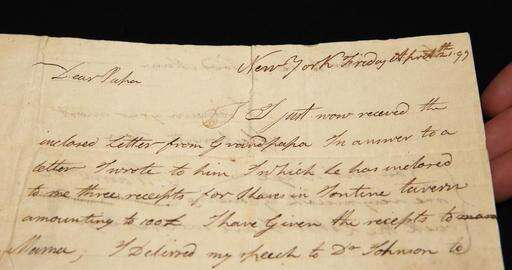 New York Friday April 97
Dear Papa
I Just now receved the
inclosed Letter from Grandpapa In answer to a
letter I wrote to him In which he has inclosed
to me three receipts for Shares in Tontine tavern
amounting to 100£ I have Given the recepts to mam
Mama, I Delivred my speech to Dr Johnson to